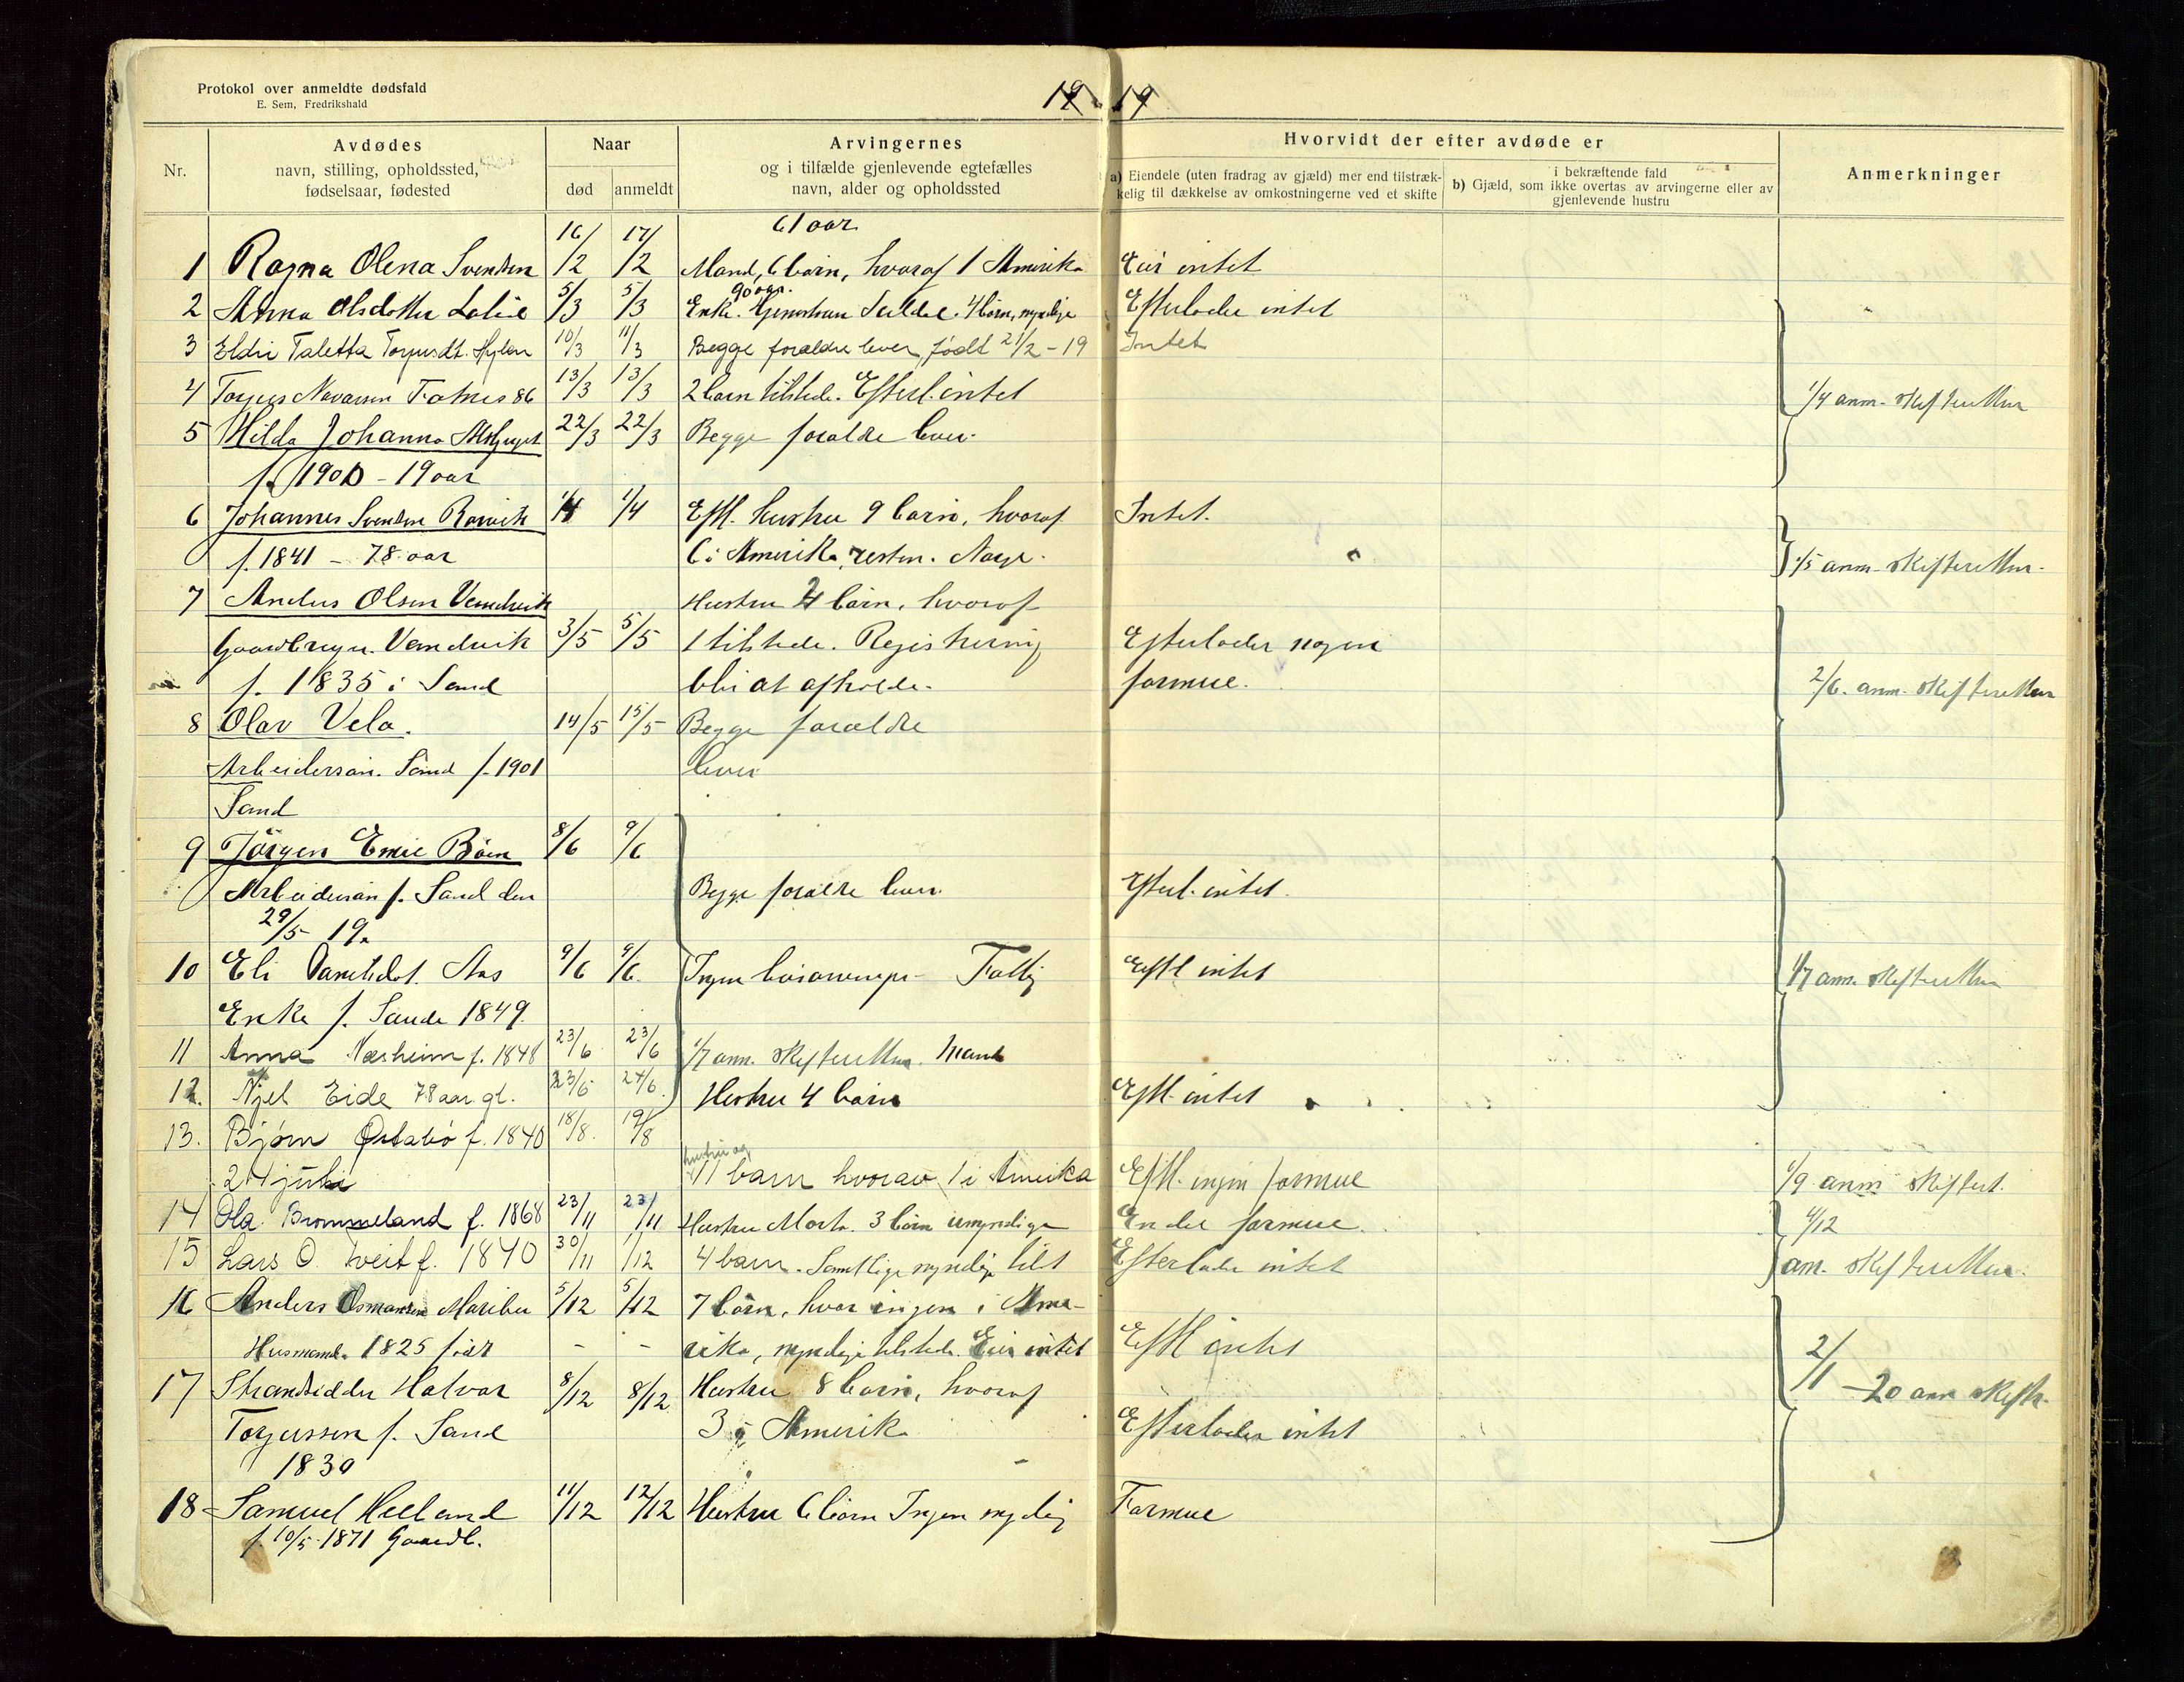 Protokol over anmeldte dødsfald
E. Sem, Fredrikshald
19 19
Nr.
Avdødes
navn, stilling, opholdssted,
fødselsaar, fødested
Naar
død
anmeldt
Arvingernes
og i tilfælde gjenlevende egtefælles
navn, alder og opholdssted
Hvorvidt der efter avdøde er
a) Eiendele (uten fradrag av gjæld) mer end tilstræk-
kelig til dækkelse av omkostningerne ved et skifte
i bekræftende fald
b) Gjæld, som ikke overtas av arvingerne eller av
gjenlevende hustru
Anmerkninger
61 aar
1 Ragna Olena Svendsen 16/2 17/2 Mand, 6 børn, hvoraf 1 Amerika Eier intet
90 aar.
2 Anna Olsdatter 5/3 5/3 Enke. 4 børn, myndige Efterlader intet
3 Eldri Taletta Torjusdt. Hylen 10/3 11/3 Begge forældre lever, født 21/2 - 19 Intet
4 Torjus 86 13/3 13/3 2 barn tilstede. Efterl. intet 1/4 anm. skifteretten
5 Hilda Johanna 22/3 22/3 Begge forældre lever.
f. 1900 - 19 aar
6 Johannes Svendsen 1/4 1/4 Eftl. hustru 9 børn, hvoraf Intet.
f. 1841 - 78 aar 6 i Amerika, resten i Norge. 1/5 anm. skifteretten.
7 Anders Olsen Vandvik Hustru 4 børn, hvoraf
Gaardbruger Vandvik 3/5 5/5 1 tilstede. Registrering Efterlader nogen
f. 1835 i Sand blir at afholde. formue. 2/6. anm. skifteretten
8 Olav Vela. 14/5 15/5 Begge forældre
Arbeidersøn. Sand f. 1901 lever
Sand
9 Jørgen Emil Bøen 8/6 9/6
Arbeidersøn f. Sand den Begge forældre lever. Efterl. intet.
29/5 19.
10 Eli Aas 9/6 9/6. Ingen Fattig Eftl intet 1/7 anm. skifteretten
Enke f. Sauda 1849.
11 Anna Næsheim f. 1848 23/6 23/6 1/7 anm. skifteretten. Mand
12. Njel Eide 78 aar gl. 23/6 24/6. Hustru 4 børn Eftl. intet
13. Bjørn Østabø f. 1840 18/8. 19/8
24 juli hustru og 11 barn hvorav 1 i Amerika Eftl. ingen formue 1/9 anm skifteret.
14 Ola Brommeland f. 1868 23/11 23/11 Hustru 3 børn umyndige En del formue. 4/12
15 Lars O. Tveit f. 1840 30/11 1/12 4 barn. Samtlige myndige tilst Efterlader intet am. skifteretten.
16 Anders Osmundsen 5/12 5/12 7 børn, hvor ingen i Ame-
Husmand. 1825 født - - rika, myndige tilstede. Eier intet Eftl intet 2/1 -20 anm skiftr.
17 Strandsidder Halvor 8/12 8/12 Hustru 8 børn, hvoraf
Torjussen f. Sand 3 i Amerika Efterlader intet
1830
18 Samuel Helland 11/12 12/12 Hustru 6 børn Ingen myndig Formue
f. 10/5 1871 Gaardb.